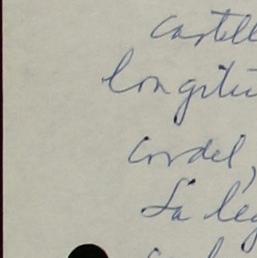 castell
longitu
cordel,
La leg